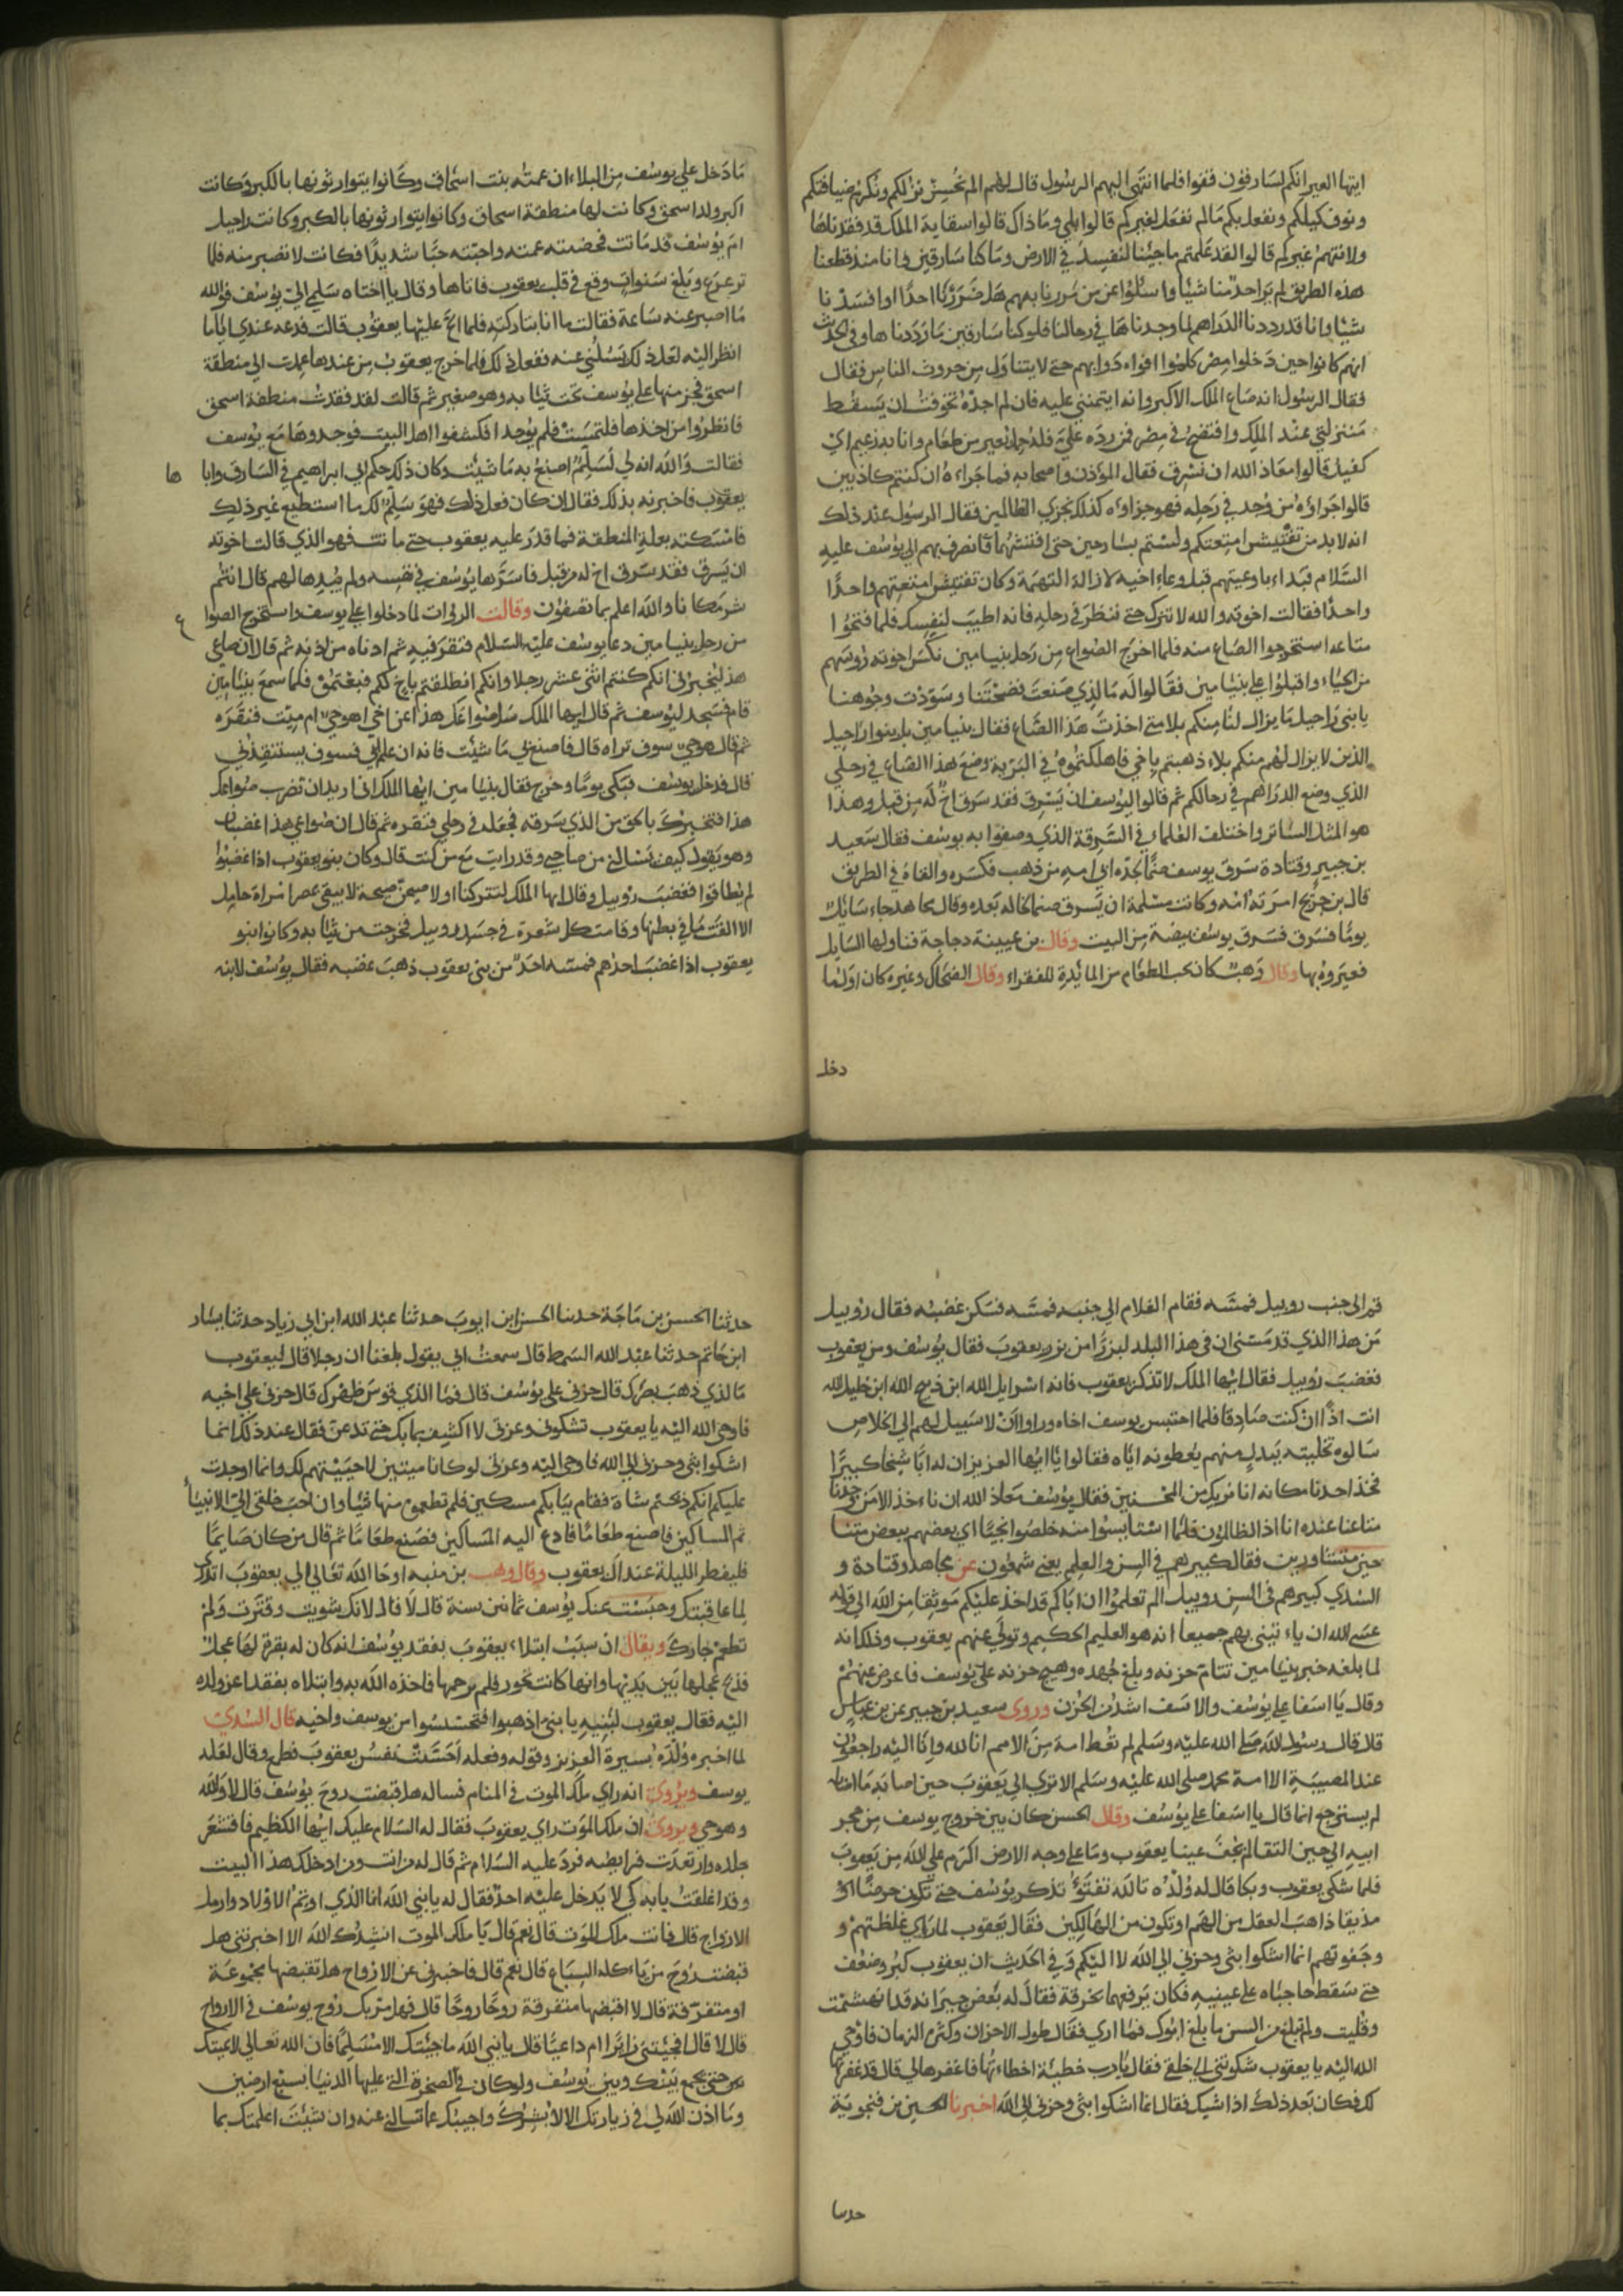 ايتها العير انكم لسارقون فقفوا فلما انتهى اليهم الرسول قال لهم الم نحسن نزلكم ونكرم ضيافتكم
ونوف كيلكم ونفعل بكم مالم نفعل لغيركم قالوا بلي وما ذاك قالوا سقاية الملك قد فقدناها
ولا نتهم غيركم قالوا لقد علمتم ماجئنا لنفسد في الارض وما كنا سارقين وانا منذ قطعنا
هذه الطريق لم نرا احدا منا شيأ واسئلوا عنا من مررنا بهم هل ضررنا احدًا او افسدنا
شيئا وانا قد رددنا الدراهم لما وجدناها في رحالنا فلو كنا سارقين ما رددناها وفي الحديث
انهم كانوا حين دخلوا مصر كلموا افواه دوابهم حتى لا يتناول من حروث الناس فقال
فقال الرسول انه صاع الملك الاكبر وانه ايتمنني عليه فان لم اجده تخوفت ان يسقط
منزلتي عند الملك وافتضح في مصر فمن رده علي فله حمل بعير من طعام وانا به زعيم اي
كفيل قالوا معاذ الله ان نسرق فقال المؤذن واصحابه فما جزاءه ان كنتم كاذبين
قالوا جزاؤه من وجد في رحله فهو جزاؤه كذلك نجزي الظالمين فقال الرسول عند ذلك
انه لا بد من تفتيش امتعتكم ولستم بسارحين حتى افتشها فانصرف بهم الى يوسف عليه
السلام فبداء باوعيتهم قبل وعاء اخيه لازالة التهمة وكان تفتيش امتعتهم واحدًا
واحدًا فقالت اخوته والله لا نترك حتى تنظر في رحله فانه اطيب لنفسك فلما فتحوا
متاعه استخرجوا الصاع منه فلما اخرج الصواع من رحل بنيامين نكس اخوته رؤسهم
من الحياء واقبلوا على بنيامين فقالوا له مالذي صنعت فضحتنا وسودت وجوهنا
يا بني راحيل ما يزال لنا منكم بلا متى اخذت هذا الصاع فقال بنيامين بل بنوا راحيل
الذين لا يزال لهم منكم بلاء ذهبتم باخي فاهلكتموه في البرية وضع هذا الصاع في رحلي
الذي وضع الدراهم في رحالكم ثم قالوا ليوسف ان يسرق فقد سرق اخ له من قبل وهذا
هو المثل السائر واختلف العلماء في السرقة الذي وصفوا به يوسف فقال سعيد
بن جبير وقتادة سرق يوسف صنمًا لجده ابي امه من ذهب فكسره والقاه في الطريق
قال بن جريج امرته امه وكانت مسلمة ان يسرق صنما لخاله بعده وقال مجاهد جاء سائل
يومًا فسرق يوسف بيضة من البيت وقال بن عيينة دجاجة فناولها السايل
فعيروه بها وقال وهب كان يخب الطعام من المائدة للفقراء وقال الضحاك وغيره كان اول ما
دخل
ما دخل علي يوسف من البلاء ان عمته بنت اسحاق وكانوا يتوارثونها بالكبر وكانت
اكبر ولد اسحق وكانت لها منطقة اسحاق وكانوا يتوارثونها بالكبر وكانت راحيل
ام يوسف قد ماتت فحضنته عمته واحبته حبًا شديدًا فكانت لا تصبر عنه فلما
ترعرع وبلغ سنوات وقع في قلب يعقوب فاتاها وقال يا اختاه سلمي الي يوسف فوالله
ما اصبر عنه ساعة فقالت ما انا بتاركته فلما الح عليها يعقوب قالت فدعه عندي اياما
انظر اليه لعل ذلك يسلني عنه ففعل ذلك فلما خرج يعقوب من عندها عمدت الى منطقة
اسحق فحزمتها على يوسف تحت ثيابه وهو صغير ثم قالت لقد فقدت منطقة اسحق
فانظروا من اخذها فلتمست فلم يوجد اكشفوا اهل البيت فوجدوها مع يوسف
فقالت والله انه لي لسلم اصنع به ما شيئت وكان ذلك حكم ال ابراهيم في السارق واتا ها
يعقوب فاخبرته بذلك فقال ان كان فعل ذلك فهو سلم لك ما استطيع غير ذلك
فامسكته بعلة المنطقة فما قدر عليه يعقوب حتى ماتت فهو الذي قالت اخوته
ان يسرق فقد سرق اخ له من قبل فاسرها يوسف في نفسه ولم يبدها لهم قال انتم
شر مكانا والله اعلم بما تصفون وقالت الرواة لما دخلوا على يوسف واستخرج الصوا ع
من رحل بنيامين دعا يوسف عليه السلام فنقر فيه ثم ادناه من اذنه ثم قال ان صاعي
هذا ليخبرني انكم كنتم اثني عشر رجلا وانكم انطلقتم باخ لكم فبعتموه فلما سمع بنيامين
قام فسجد ليوسف ثم قال ايها الملك سل صواعك هذا عن اخي اهو حي ام ميت فنقره
ثم قال هو حي سوف تراه قال فاصنع بي ما شئت فانه ان علم بي فسوف يستنقذني
قال فدخل يوسف فبكى يومًا وخرج فقال بنيامين ايها الملك اني اريد ان تضرب صواعك
هذا فتخبرك بالحق من الذي سرقه فجعله في رحلي فنقره ثم قال ان صواعي هذا غضبان
وهو يقول كيف تسالني من صاحبي وقد رايت مع من كنت قال وكان بنو يعقوب اذا غضبوا
لم يطاقوا فغضب روبيل وقال ايها الملك لتتركنا او لاصيحن صيحة لا يبقى بمصر امراة حامل
الا القت ما في بطنها وقامت كل شعرة في جسد روبيل فخرجت من ثيابه وكانوا بنو
يعقوب اذا غضب احدهم فمسه احد من بني يعقوب ذهب غضبه فقال يوسف لابنه
قم الى جنب روبيل فمسه فقام الغلام الى جنبه فمسه فسكن غضبه فقال روبيل
من هذا الذي قد مسني ان في هذا البلد لبزرًا من بزر يعقوب فقال يوسف ومن يعقوب
فغضب روبيل فقال ايها الملك لا تذكر يعقوب فانه اسرايل الله ابن ذبيح الله ابن خليل الله
انت اذًا ان كنت صادقا فلما احتبس يوسف اخاه وراوا ان لا سبيل لهم الى الخلاص
سالوه تخليته ببدل منهم يعطونه اياه فقالوا يا ايها العزيز ان له ابًا شيخًا كبيرًا
فخذ احدنا مكانه انا نريك من المحسنين فقال يوسف معاذ الله ان ناءخذ الا من وجدنا
متاعنا عنده انا اذا لظالمون فلما استايسوا منه خلصوا نجيًا اي بعضهم ببعض متنا
حين متشاورين فقال كبيرهم في السن والعلم يعني شمعون عن مجاهد وقتادة و
السدي كبيرهم في السن روبيل الم تعلموا ان اباكم قد اخذ عليكم موثقا من الله الى قوله
عسى الله ان ياءتيني بهم جميعا انه هو العليم الحكيم وتولى عنهم يعقوب وذلك انه
لما بلغه خبر بنيامين تتام حزنه وبلغ جهده وهيج حزنه على يوسف فاعرض عنهم
وقال يا اسفا على يوسف والاسف اشد الحزن وروى سعيد بن جبير عن بن عباس
قال قال رسول الله صلى الله عليه وسلم لم تعط امة من الامم انا لله وانا اليه راجعون
عند المصيبة الا امة محمد صلى الله عليه وسلم الا ترى الى يعقوب حين اصابه ما اصابه
لم يسترجع انما قال يا اسفا على يوسف وقال الحسن كان بين خروج يوسف من حجر
ابيه الى حين التقا لم تجف عينا يعقوب وما على وجه الارض اكرم على الله من يعقوب
فلما شكى يعقوب وبكا قال له ولده تالله تفتؤ تذكر يوسف حتى تكون حرضًا اي
مذيقا ذاهب العقل من الهم او تكون من الهالكين فقال يعقوب لما راي غلظتهم و
وجفوتهم انما اشكوا بثي وحزني الى الله لا اليكم وفي الحديث ان يعقوب كبر وضعف
حتى سقط حاجباه على عينيه فكان يرفعهما بخرقة فقال له بعض جيرانه قد انهشمت
وفنيت ولم تبلغ من السن ما بلغ ابوك فما اري فقال طول الاحزان وكثرة الزمان فاوحى
الله اليه يا يعقوب شكوتني الى خلقي فقال يا رب خطيئة اخطاءتها فاغفرها لي قال قد غفرتها
لك فكان بعد ذلك اذا شيك فقال انما اشكوا بثي وحزني الى الله اخبرنا الحسين بن فنجوية
حدثنا
حدثنا الحسن بن ماجة حدثنا الحسن ابن ايوب حدثنا عبد الله ابن ابي زياد حدثنا بسار
ابن حاتم حدثنا عبد الله السمط قال سمعت ابي يقول بلغنا ان رجلا قال ليعقوب
مالذي ذهب بصرك قال حزني على يوسف قال فما الذي قوس ظهرك قال حزني على اخيه
فاوحى الله اليه يا يعقوب تشكوني وعزتي لا اكشف ما بك حتى تدعني فقال عند ذلك انما
اشكوا بثي وحزني الى الله فاوحى اليه وعزتي لو كانا ميتين لاحييتهم لك وانما اوجدت
عليكم انكم ذبحتم شاة فقام ببابكم مسكين فلم تطعموه منها شيأ وان احب خلقي الي الانبياء
ثم المساكين فاصنع طعامًا فادع اليه المساكين فصنع طعامًا ثم قال من كان صايمًا
فليفطر الليلة عند ال يعقوب وقال وهب بن منبه اوحا الله تعالى الى يعقوب اتدري
لما عاقبتك وحبست عنك يوسف ثمانين سنة قال لا قال لانك شويت وقترت ولم
تطعم جارك ويقال ان سبب ابتلاء يعقوب بفقد يوسف انه كان له بقرة لها عجل
فذبح عجلها بين يديها وانها كانت تخور فلم يرحمها فاخذه الله به وابتلاه بفقد اعز ولده
اليه فقال يعقوب لبنيه يا بني اذهبوا فتحسسوا من يوسف واخيه قال السدي
لما اخبره ولده بسيرة العزيز وقوله وفعله احست نفس يعقوب فطمع وقال لعله
يوسف ويروى انه راي ملك الموت في المنام فساله هل قبضت روح يوسف قال لا والله
وهو حي ويروى ان ملك الموت راي يعقوب فقال له السلام عليك ايها الكظيم فاقشعر
جلده وارتعدت فرايصه فرد عليه السلام ثم قال له من انت ومن ادخلك هذا البيت
وقد اغلقت بابه كي لا يدخل عليه احد فقال له يا نبي الله انا الذي اويتم الاولاد وارمل
الازواج قال فانت ملك الموت قال نعم قال يا ملك الموت انشدك الله الا اخبرتني هل
قبضت روح من ياءكله السباع قال نعم قال فاخبرني عن الارواح هل تقبضها مجموعة
او متفرقة قال لا اقبضها متفرقة روحًا روحًا قال فهل مر بك روح يوسف في الارواح
قال لا قال افجئتني زايرًا ام داعيًا قال يا نبي الله ماجيئتك الا مسلمًا فان الله تعالى لا يميتك
حتى يجمع بينك وبين يوسف ولو كان في الصخرة التي عليها الدنيا بسبع ارضين
وما اذن الله لي في زيارتك الا لابشرك واجيبك عما تسالني عنه وان شيئت اعلمتك بما